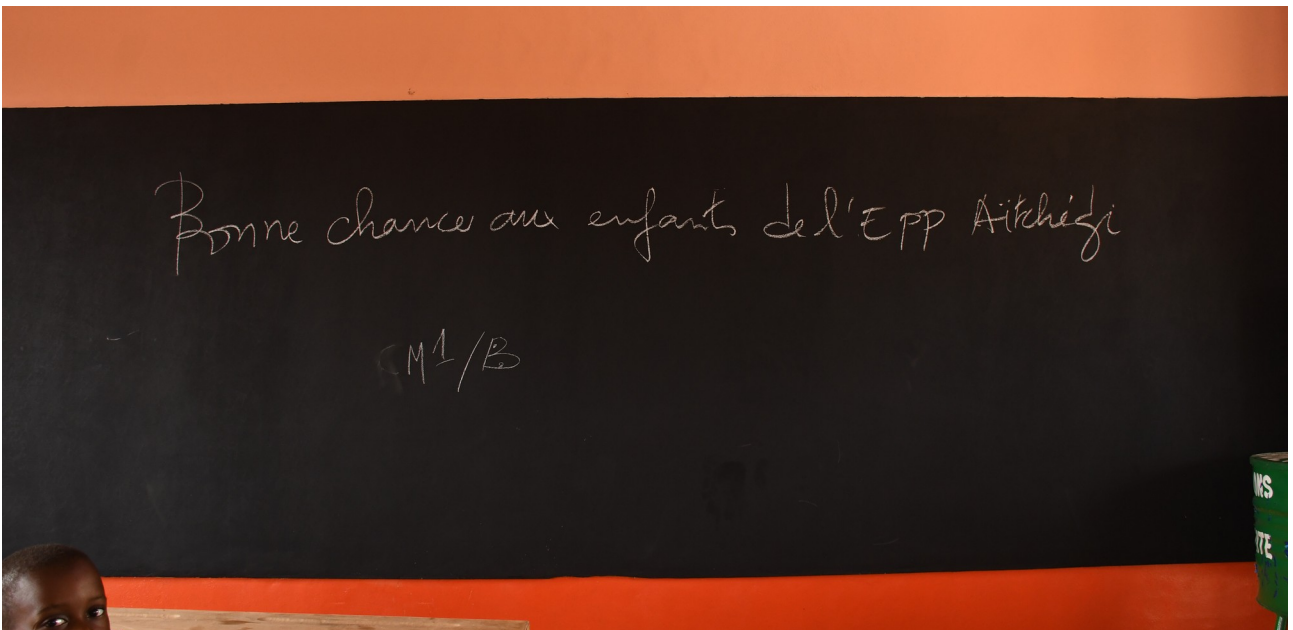 Bonne chance aux enfants de l'Epp Aïtchédji
M1/B